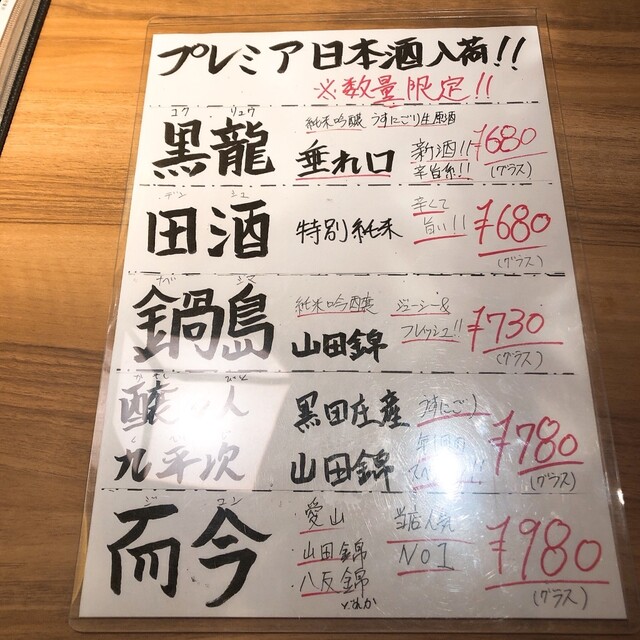 プレミア日本酒入荷!!
※数量限定!!
コク リュウ
黒龍
純米吟醸 うすにごり生原酒
垂れ口
新酒!!
辛口系!!
¥680
(グラス)
デン シュ
田酒
特別純米
辛くて
旨い!!
¥680
(グラス)
ナベ シマ
鍋島
純米吟醸
山田錦
ジューシー&
フレッシュ!!
¥730
(グラス)
醸し人
九平次
黒田庄産
山田錦
うすにごり
¥780
(グラス)
ジ コン
而今
愛山
山田錦
八反錦
どれか
当店人気
NO1
¥980
(グラス)